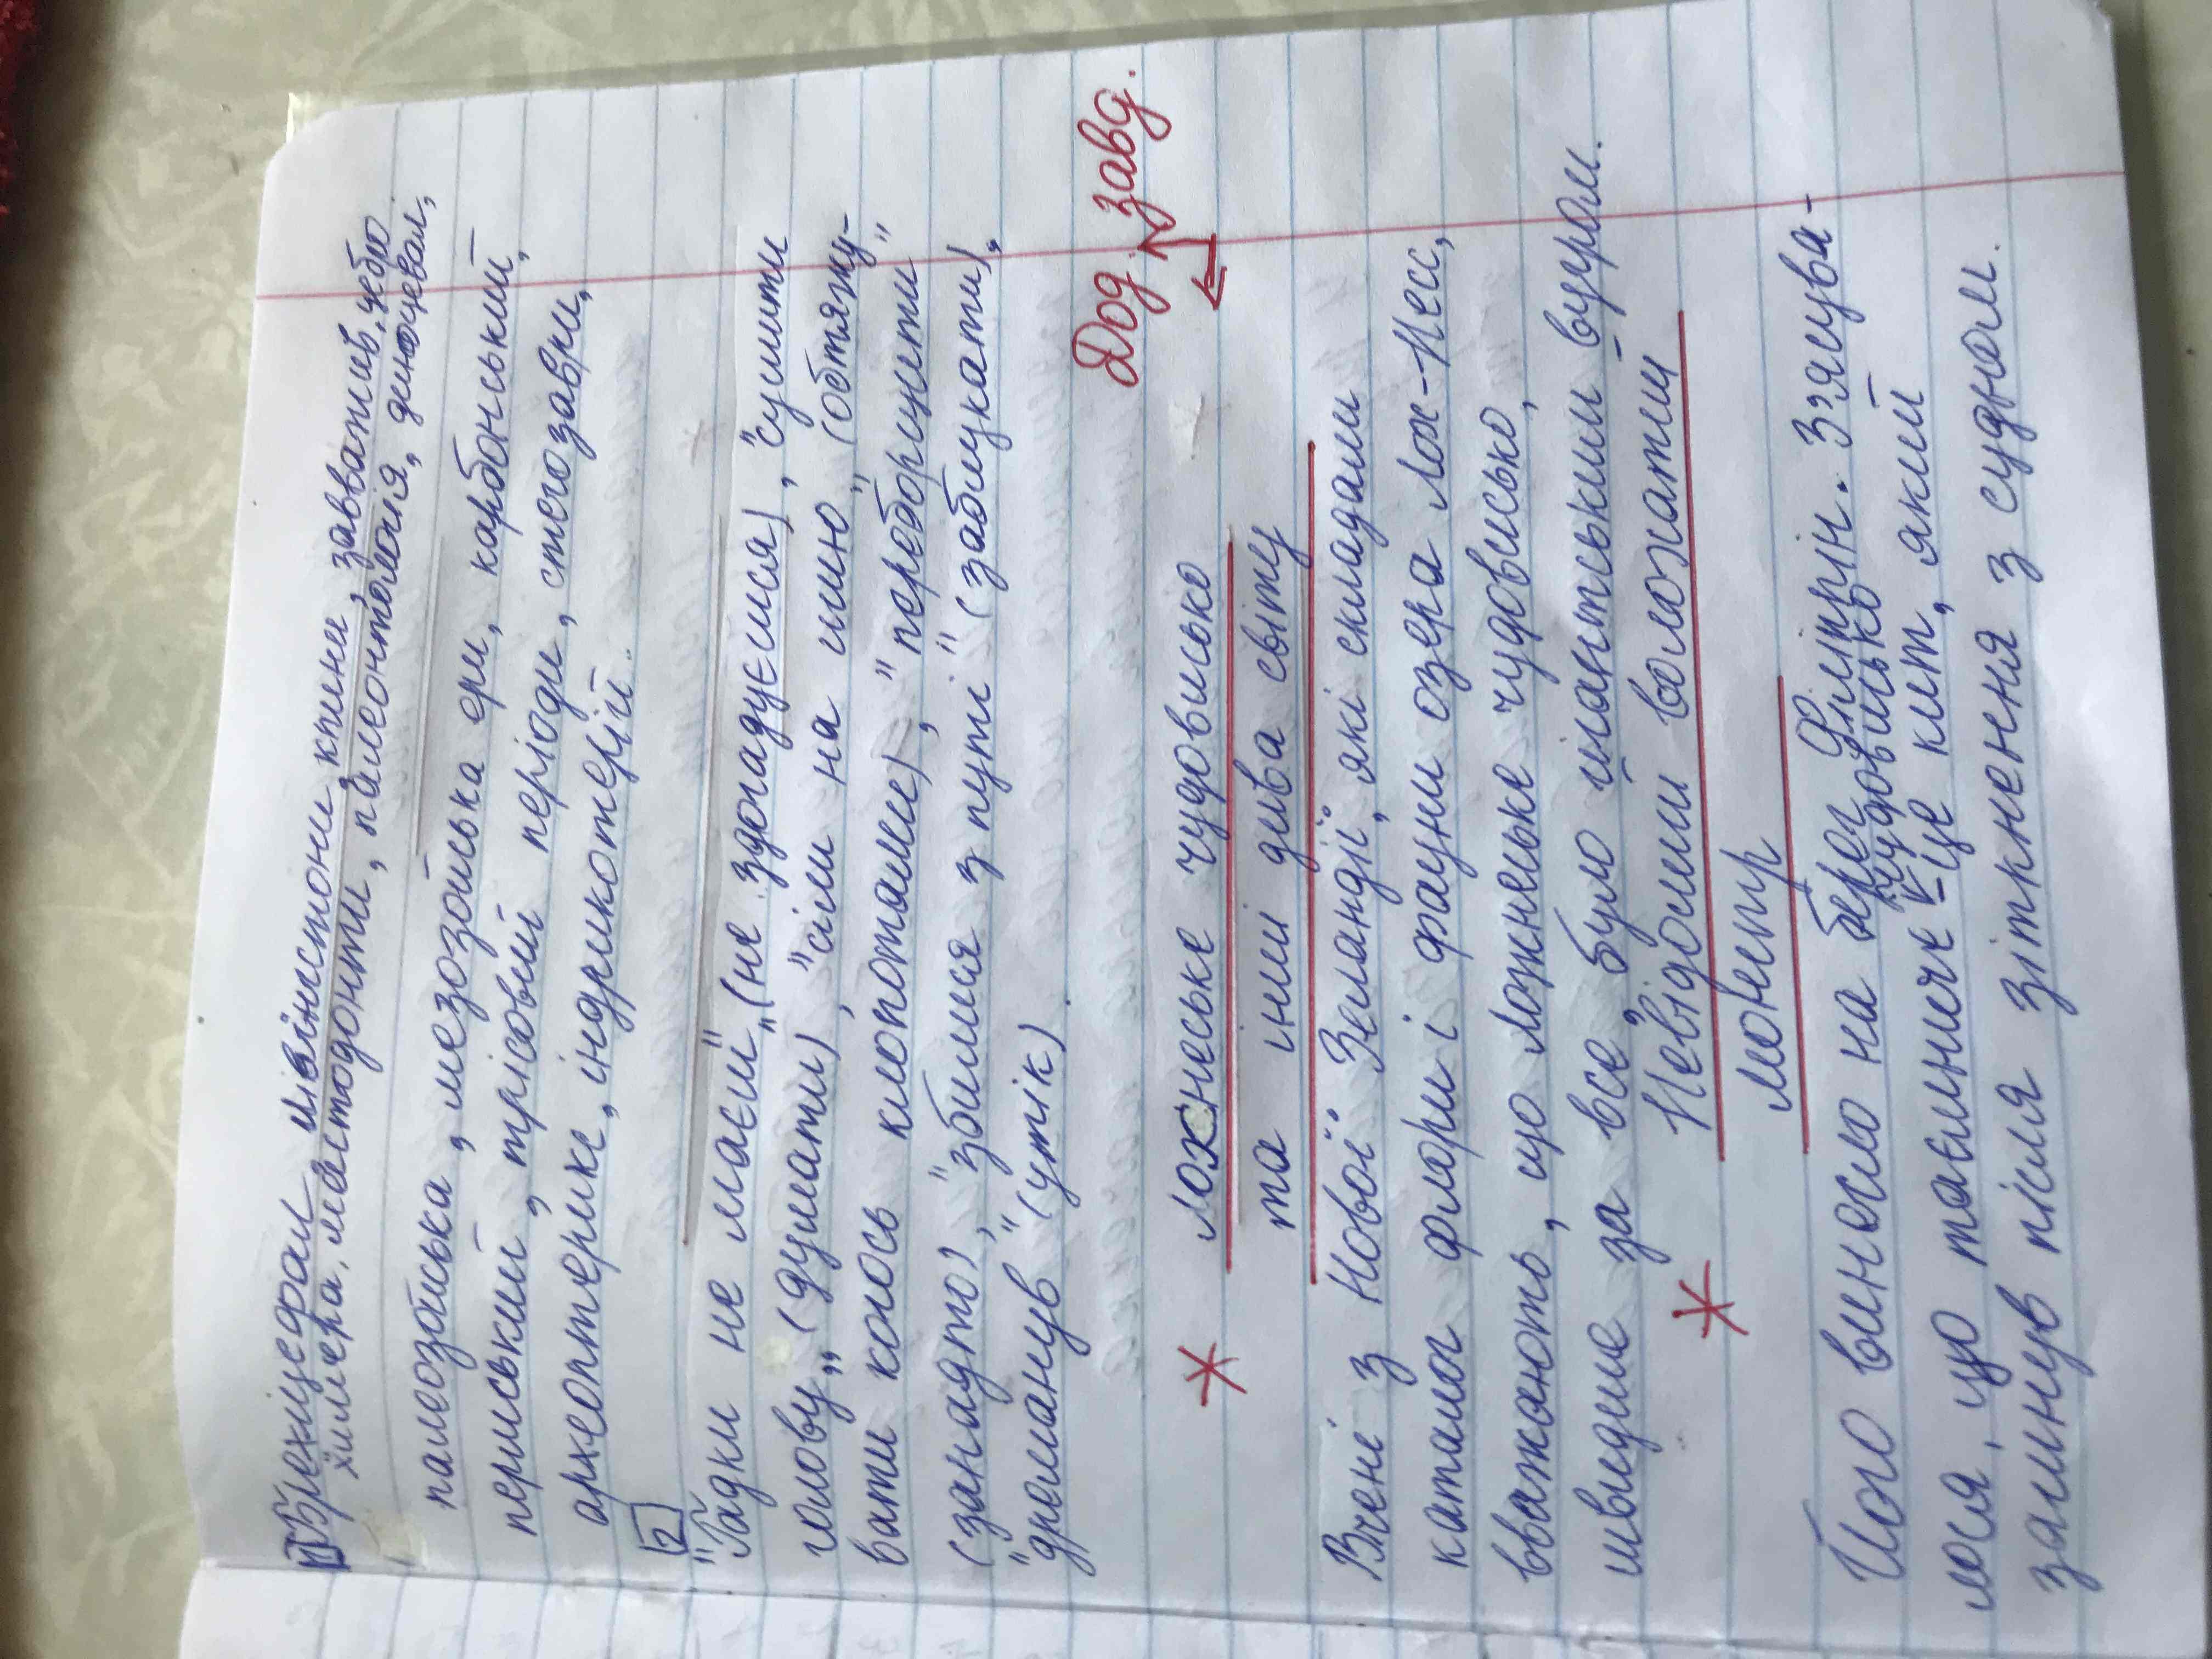 1 Брехіцерал лівінгстони, книни, завватив, цебо
химера, мастодонти, палеонтологія, диноцевал,
палеозойська, мезозойська ери, карбонський,
пермський, тріасовий періоди, стегозаври,
археоптерикс, індрикотерій.
2
"Гадки не маєш" (не здогадуєшся), "сушити
голову" (думати), "сіли на шию" (обтяжу-
вати когось клопотами), "переборщити"
(занадто), "збилися з путі" (заблукати),
"дременув" (утік).
Дод. завд.
* Лохнеське чудовисько
та інші дива світу
Вчені з Нової Зеландії, які складали
каталог флори і фауни озера Лох-Несс,
вважають, що Лохнеське чудовисько,
швидше за все, було гігантським вугром.
* Невідомий волохатий
монстр
Його винесло на берег Філіппін. З'ясува-
лося, що таємниче чудовисько - це кит, який
загинув після зіткнення з судном.